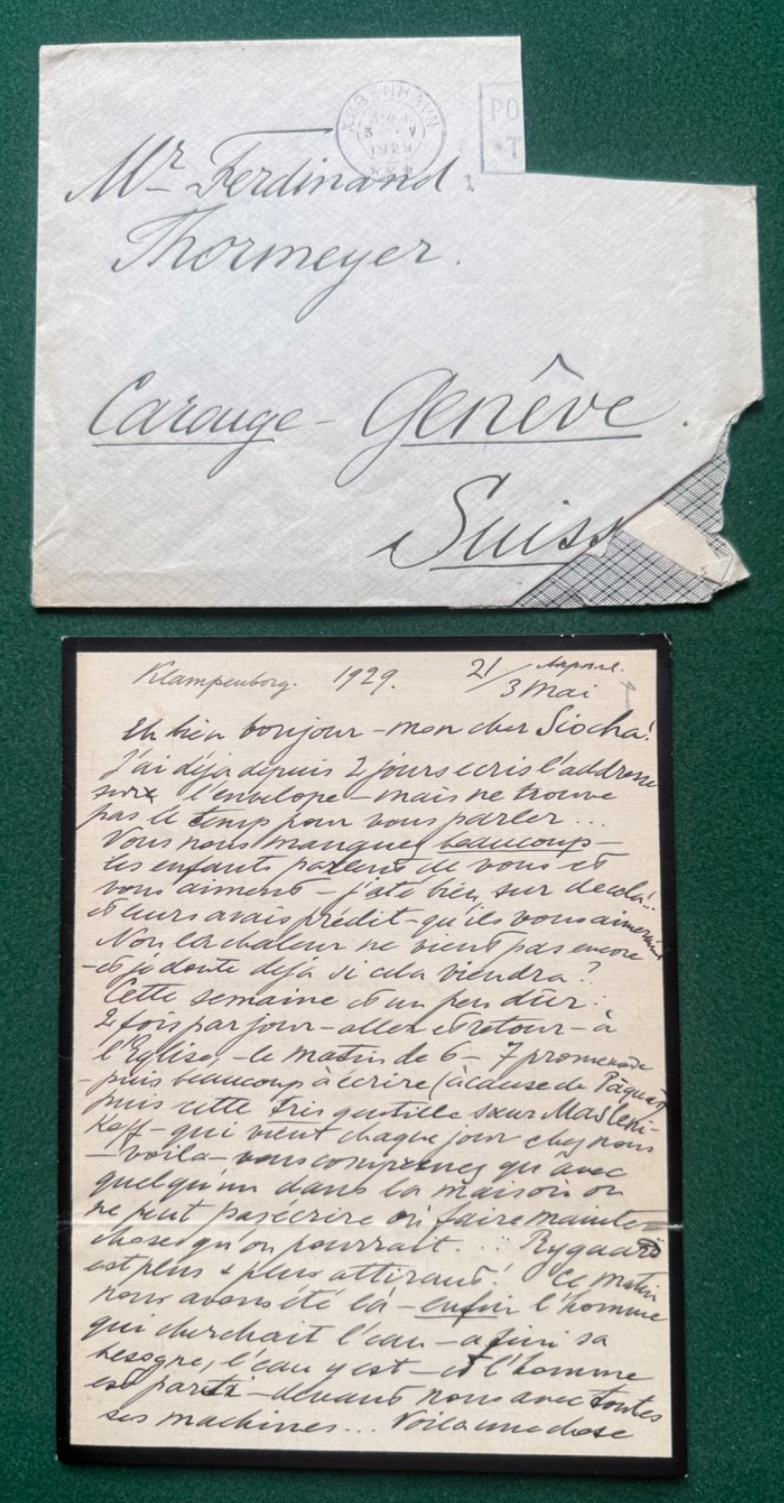 KØBENHAVN
3 V
1929
PO
T
Mr Ferdinand.
Thormeyer.
Carouge - Genêve.
Suiss
Klampenborg. 1929. 21/3 Mai
Eh bien bonjour - mon cher Siocha!
J'ai déja depuis 2 jours ecris l'addresse
l'envelope - mais ne trouve
pas le temp pour vous parler...
Vous nous manquez beaucoup -
les enfants parlent de vous et
vous aiment - bien sur
et leurs avais prédit - qu'ils vous
Non la chaleur ne vient pas encore
- et je doute deja si cela viendra?
Cette semaine est un peu dur:
2 fois par jour - aller et retour - à
l'Eglise, - le matin de 6 - 7 promenade
- puis beaucoup à écrire (à cause de Pâques)
puis cette très gentille sœur Masleni-
koff - qui vient chaque jour chez nous
- voila - vous comprenez qu'avec
quelqu'un dans la maison on
ne peut pas écrire ni faire mainte
chose qu'on pourrait... Rygaard
est plus & plus attirant! Ce matin
nous avons été là - enfin l'homme
qui cherchait l'eau - a fini sa
besogne, l'eau y est - et l'homme
est parti - devant nous avec toutes
ses machines... Voila une chose